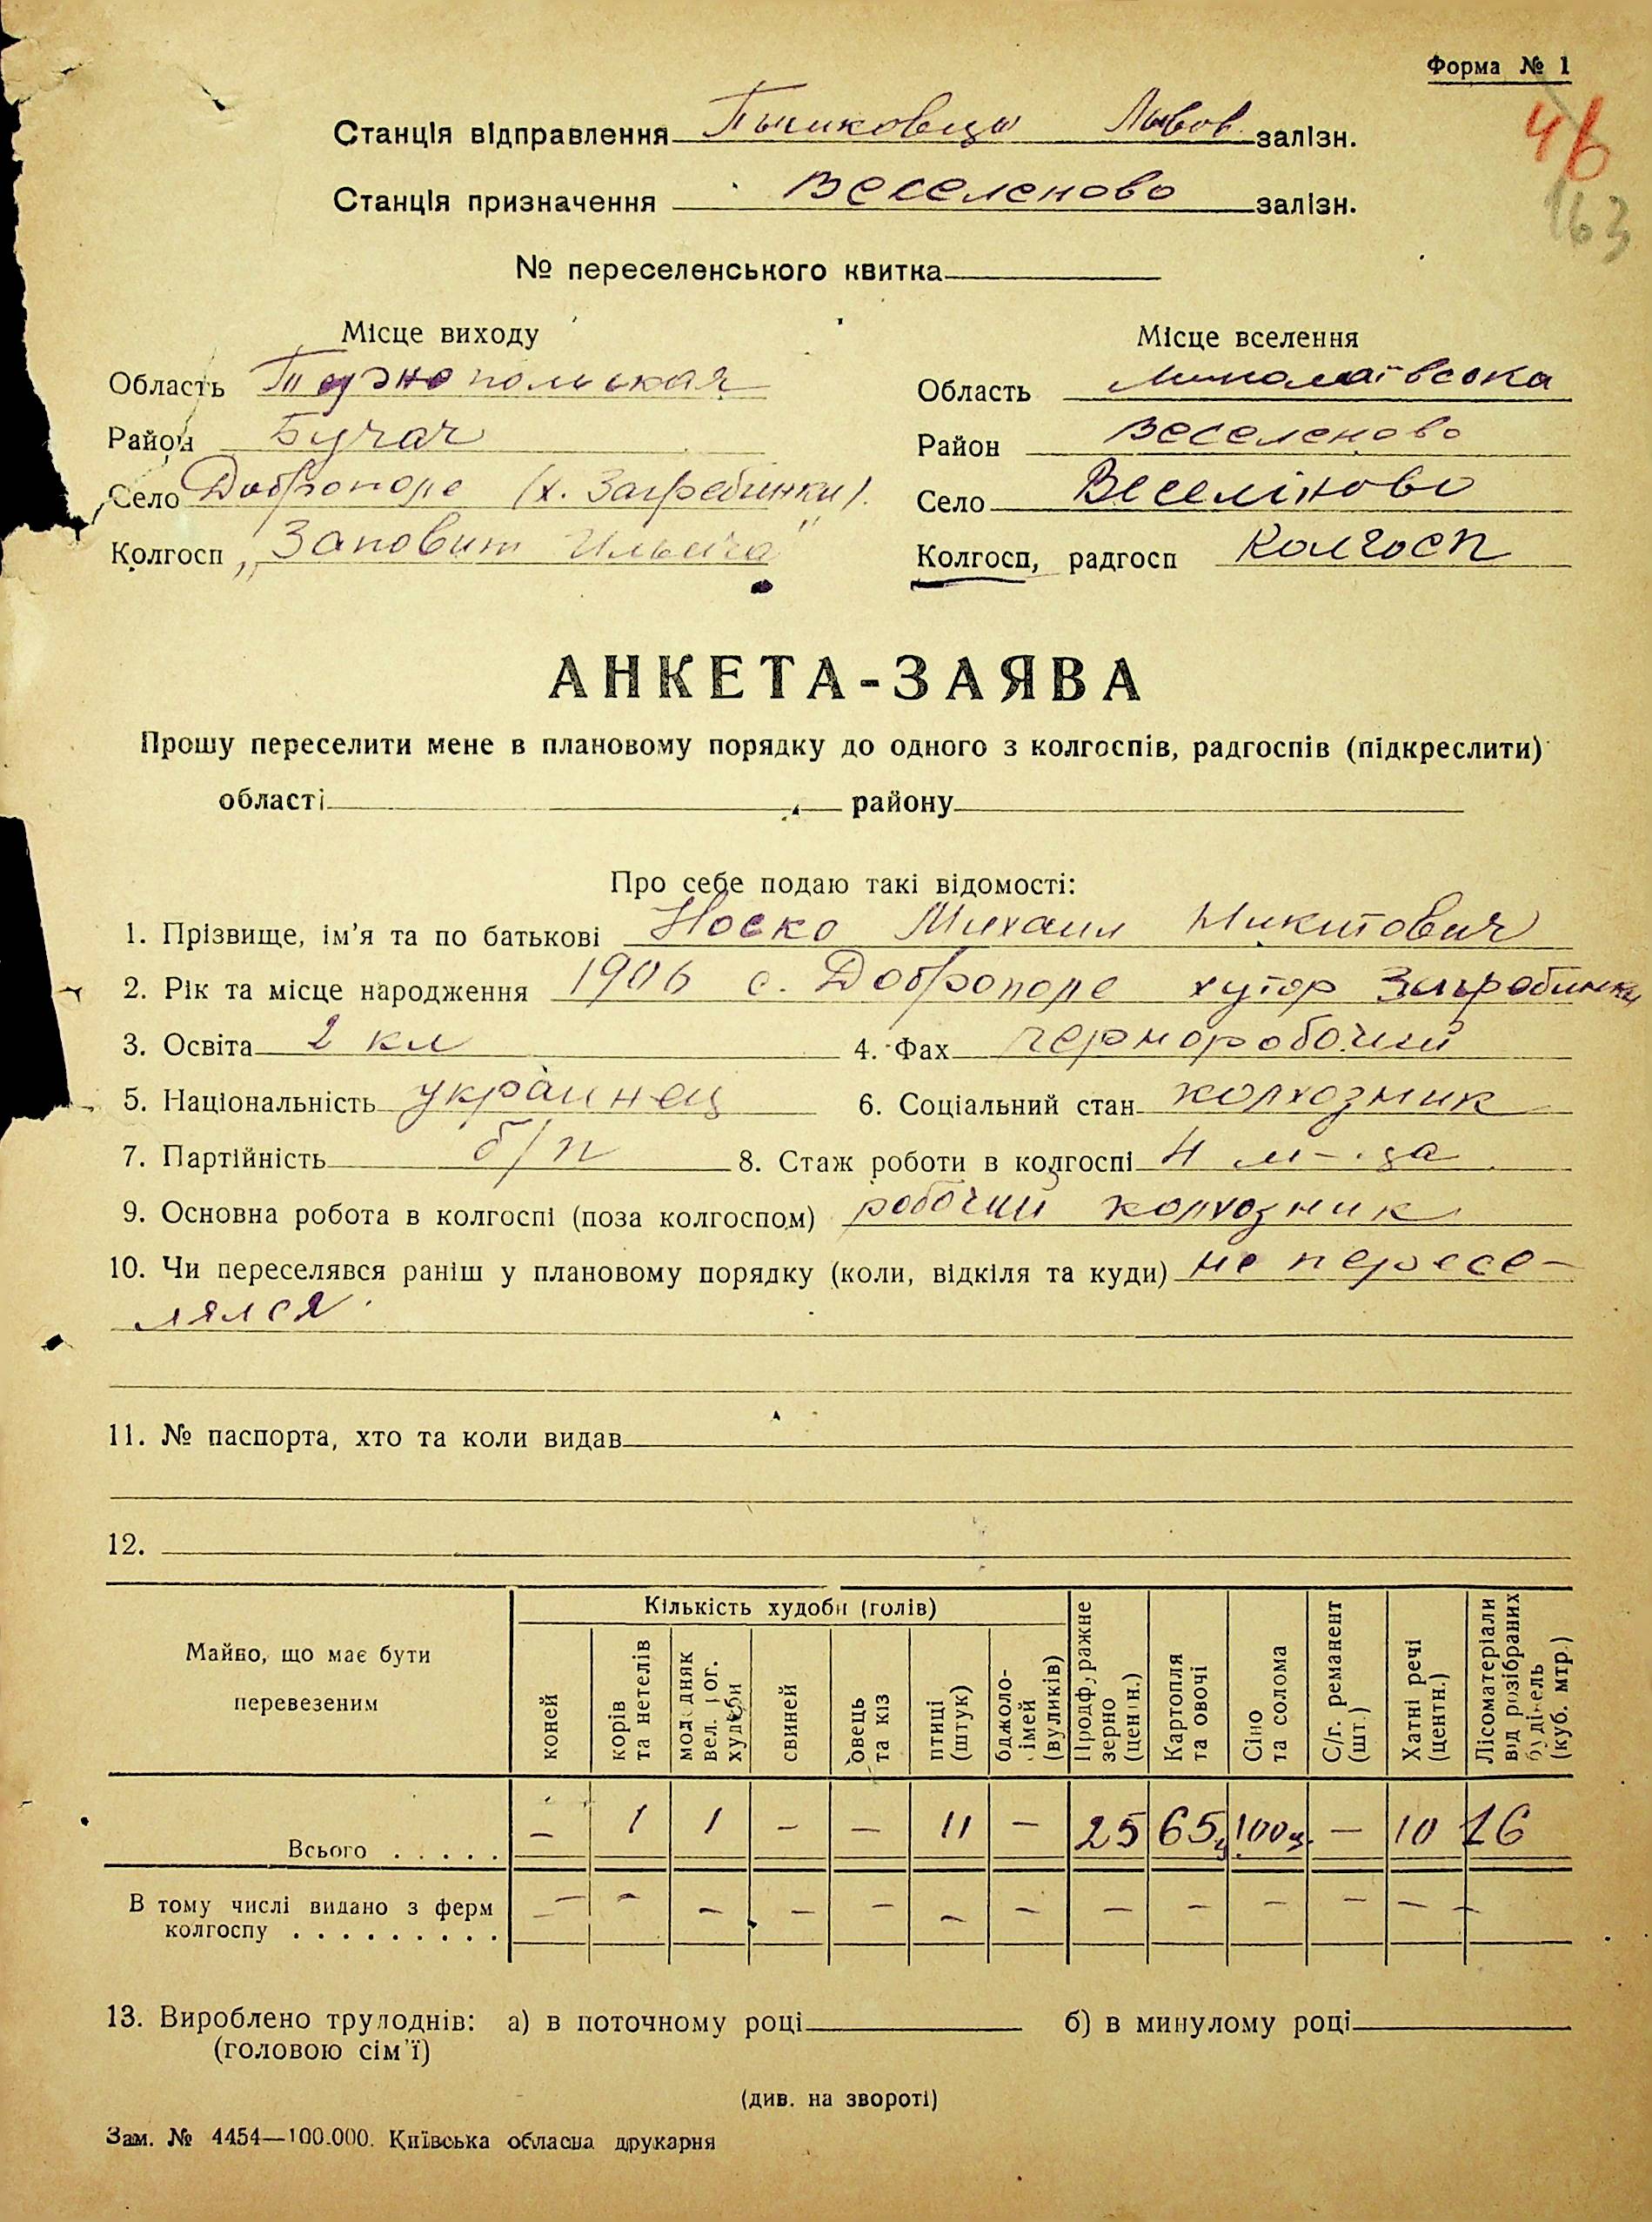 Форма № 1
46
163
Станція відправлення Пышковцы Львов. залізн.
Станція призначення Веселеново залізн.
№ переселенського квитка
Місце виходу Місце вселення
Область Тернопольская Область Миколаївська
Район Бучач Район Веселеново
Село Доброполе (х. Загребинки). Село Веселіново
Колгосп „Заповит Ильича" Колгосп, радгосп Колгосп
АНКЕТА-ЗАЯВА
Прошу переселити мене в плановому порядку до одного з колгоспів, радгоспів (підкреслити)
області району
Про себе подаю такі відомості:
1. Прізвище, ім'я та по батькові Носко Михаил Микитович
2. Рік та місце народження 1906 с. Доброполе хутор Загробинки
3. Освіта 2 кл 4. Фах чернорабочий
5. Національність украинец 6. Соціальний стан колхозник
7. Партійність б/п 8. Стаж роботи в колгоспі 4 м-ца
9. Основна робота в колгоспі (поза колгоспом) рабочий колхозник
10. Чи переселявся раніш у плановому порядку (коли, відкіля та куди) не пересе-
лялся
11. № паспорта, хто та коли видав
12.
Майно, що має бути перевезеним
Кількість худоби (голів)
коней
корів та нетелів
молодняк вел. рог. худоби
свиней
овець та кіз
птиці (штук)
бджоло- сімей (вуликів)
Продфуражне зерно (центн.)
Картопля та овочі
Сіно та солома
С/г. реманент (шт.)
Хатні речі (центн.)
Лісоматеріали від розібраних будівель (куб. мтр.)
Всього . . . . . — 1 1 — — 11 — 25 65ц 100ц. — 10 16
В тому числі видано з ферм
колгоспу . . . . . . . . . — — — — — — — — — — — — —
13. Вироблено трудоднів: а) в поточному році б) в минулому році
(головою сім'ї)
(див. на звороті)
Зам. № 4454—100.000. Київська обласна друкарня